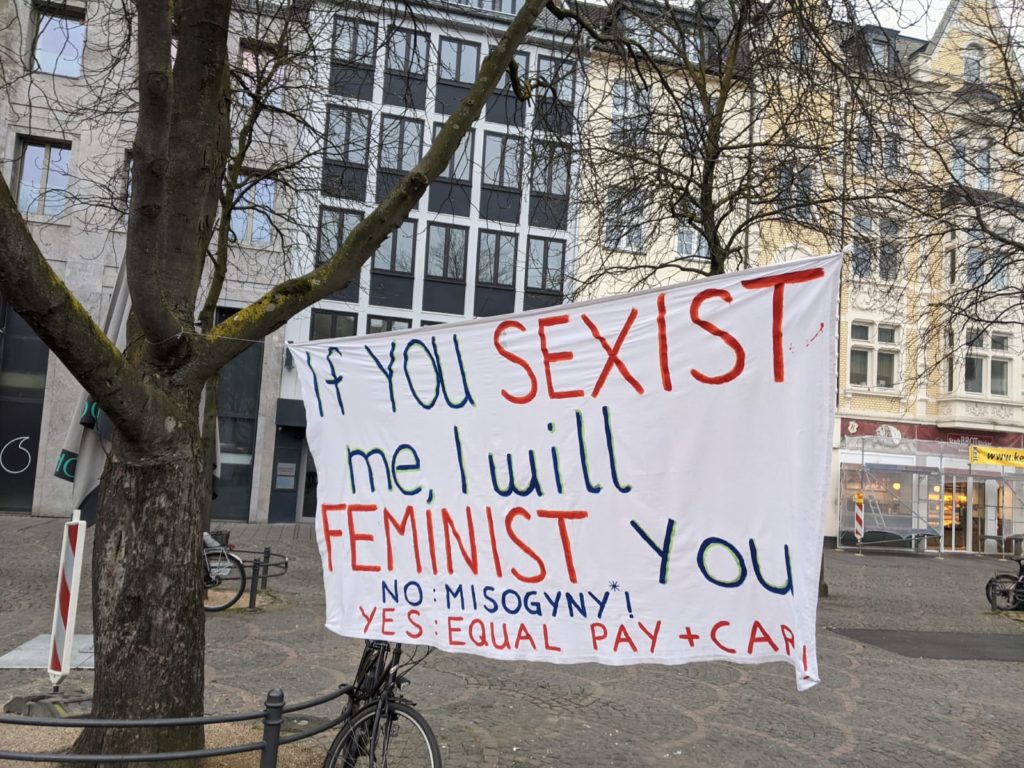 If YOU SEXIST
me, I will
FEMINIST YOU
NO: MISOGYNY*!
YES: EQUAL PAY + CAR !
www.ke